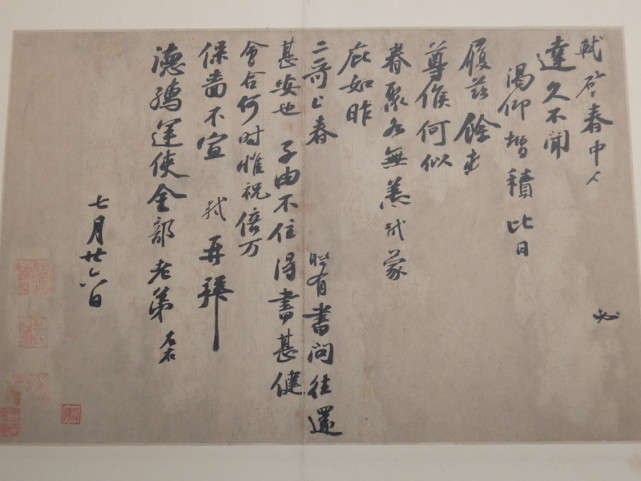 軾啓春中人 必
達久不聞
渴仰增積比日
履茲餘
尊候何似
眷聚各無恙軾蒙
庇如昨
二哥上春 有書問往還
甚安也子由不住得書甚健
會合何时惟祝倍万
保嗇不宣 軾再拜
德孺運使金部老弟
七月廿六日